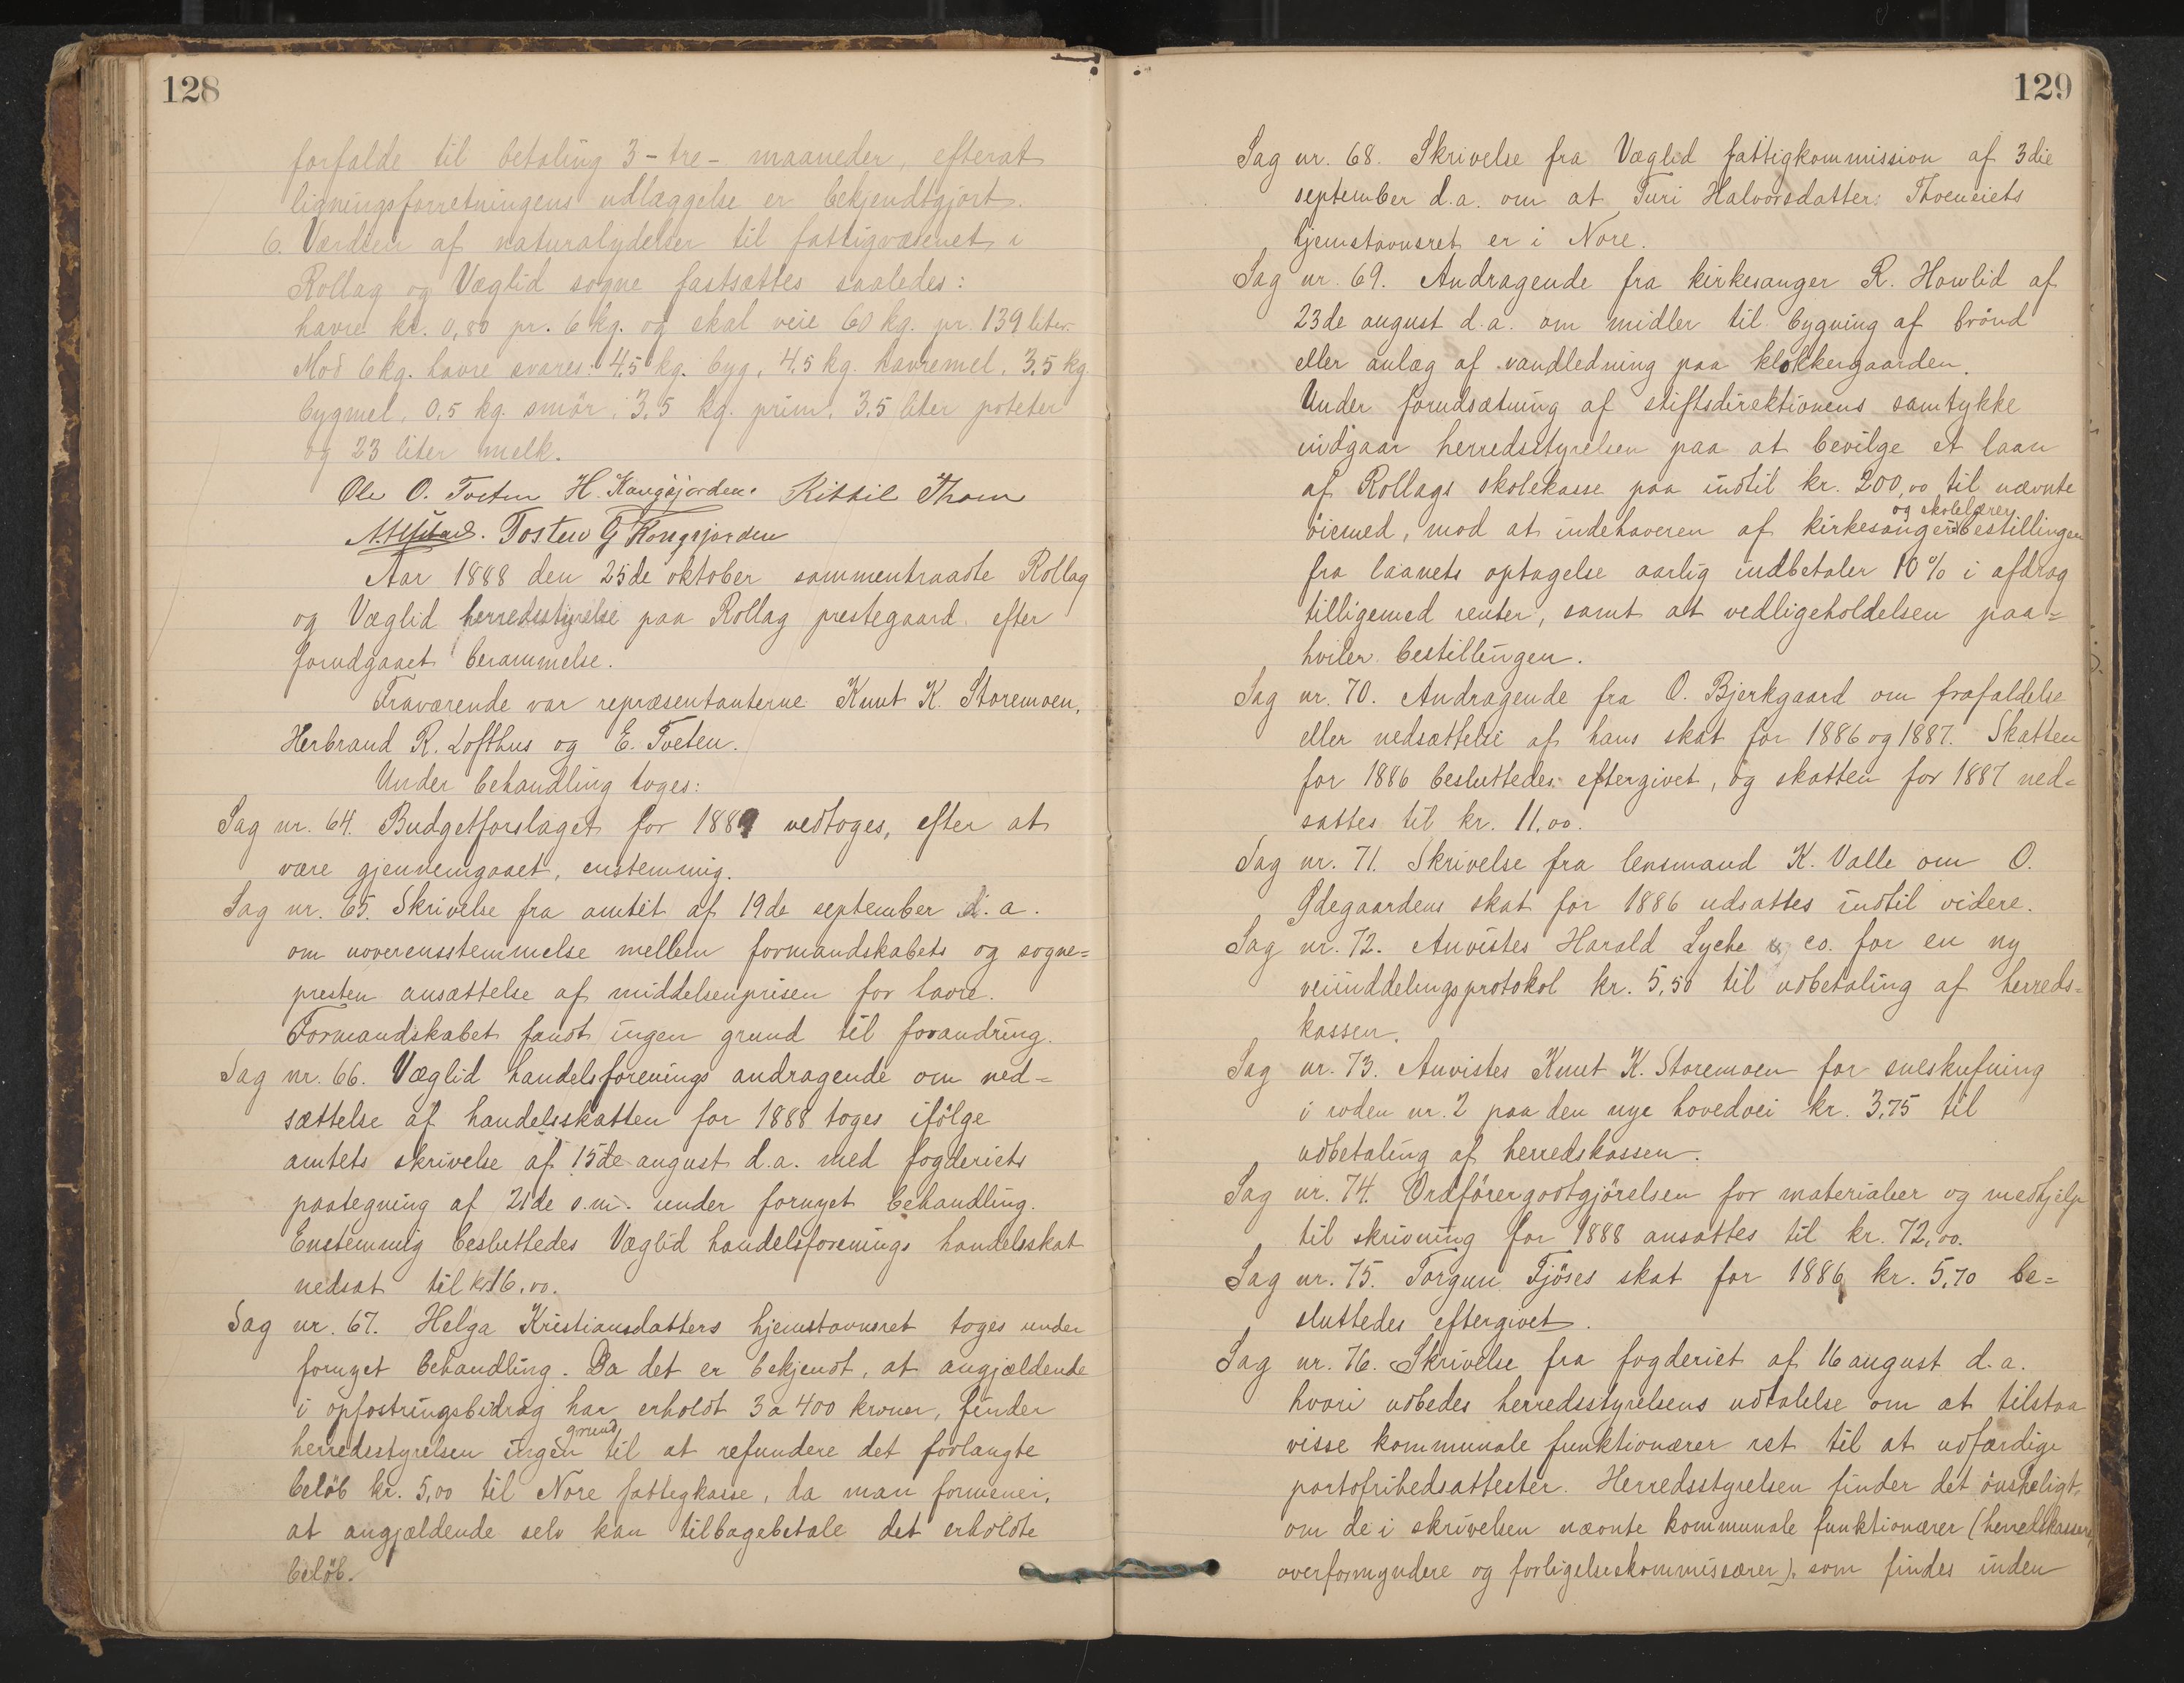 128
forfalde til betaling 3-tre- maaneder, efterat
ligningsforretningens udlæggelse er bekjendtgjort.
6. Værdien af naturalydelser til fattigvæsenet i
Rollag og Væglid sogne fastsattes saaledes:
havre kr. 0,80 pr. 6 kg. og skal veie 60 kg. pr. 139 liter.
Mod 6 kg. havre svares: 4,5 kg. byg, 4,5 kg. havremel, 3,5 kg
bygmel, 0,5 kg. smör, 3,5 kg. prim, 3,5 liter poteter
og 23 liter melk.
Ole O. Tveten H. Kongsjorden. Kittil Thoen
Tosten G Kongsjorden
Aar 1888 den 25de oktober sammentraadte Rollag
og Væglid herredsstyrelse paa Rollag prestegaard efter
forudgaaet berammelse.
Fraværende var repræsentanterne Knut K. Storemoen,
Herbrand R. Lofthus og E. Tveten.
Under behandling toges:
Sag nr. 64. Budgetforslaget for 1889 vedtoges, efter at
være gjennemgaaet, enstemmig.
Sag nr. 65. Skrivelse fra amtet af 19de september d.a.
om uoverensstemmelse mellem formandskabets og sogne=
presten ansættelse af middelsenprisen for havre.
Formandskabet fandt ingen grund til forandring.
Sag nr. 66. Væglid handelsforenings andragende om ned=
sættelse af handelsskatten for 1888 toges ifölge
amtets skrivelse af 15de august d.a. med fogderiets
paategning af 21de s.m. under fornyet behandling.
Enstemmig besluttedes Væglid handelsforenings handelsskat
nedsat til kr 16,00.
Sag nr. 67. Helga Kristiansdatters hjemstavnsret toges under
fornyet behandling. Da det er bekjendt, at angjældende
i opfostringsbidrag har erholdt 3 a 400 kroner, finder
herredsstyrelsen ingen grund til at refundere det forlangte
belöb kr. 5,00 til Nore fattigkasse, da man formener,
at angjældende selv kan tilbagebetale det erholdte
belöb.
129
Sag nr. 68. Skrivelse fra Væglid fattigkommission af 3die
september d.a. om at Turi Halvorsdatter Thoeneiets
hjemstavnsret er i Nore.
Sag nr. 69. Andragende fra kirkesanger R. Howlid af
23de august d.a. om midler til bygning af brönd
eller anlæg af vandledning paa klokkergaarden.
Under forudsætning af stiftsdirektionens samtykke
indgaar herredsstyrelsen paa at bevilge et laan
af Rollags skolekasse paa indtil kr. 200,00 til nævnte
öiemed, mod at indehaveren af kirkesanger og skolelærerbestillingen
fra laanets optagelse aarlig indbetaler 10% i afdrag
tilligemed renter, samt at vedligeholdelsen paa=
hviler bestillingen.
Sag nr. 70. Andragende fra O. Bjerkgaard om frafaldelse
eller nedsættelse af hans skat for 1886 og 1887. Skatten
for 1886 besluttedes eftergivet, og skatten for 1887 ned=
sattes til kr. 11,00.
Sag nr. 71. Skrivelse fra lensmand K. Valle om O.
Ödegaardens skat for 1886 udsattes indtil videre.
Sag nr. 72. Anvistes Harald Lyche & co. for en ny
veiinddelingsprotokol kr. 5,50 til udbetaling af herreds=
kassen.
Sag nr. 73. Anvistes Knut K. Storemoen for sneskufning
i roden nr. 2 paa den nye hovedvei kr. 3,75 til
udbetaling af herredskassen.
Sag nr. 74. Ordförergodtgjörelsen for materialier og medhjelp
til skrivning for 1888 ansattes til kr. 72,00.
Sag nr. 75. Torgun Fjöses skat for 1886 kr. 5,70 be=
sluttedes eftergivet.
Sag nr. 76. Skrivelse fra fogderiet af 16 august d.a.
hvori udbedes herredsstyrelsens udtalelse om at tilstaa
visse kommunale funktionærer ret til at udfærdige
portofrihedsattester. Herredsstyrelsen finder det önskeligt,
om de i skrivelsen nævnte kommunale funktionærer (herredskassere,
overformyndere og forligelseskommissærer), som findes inden